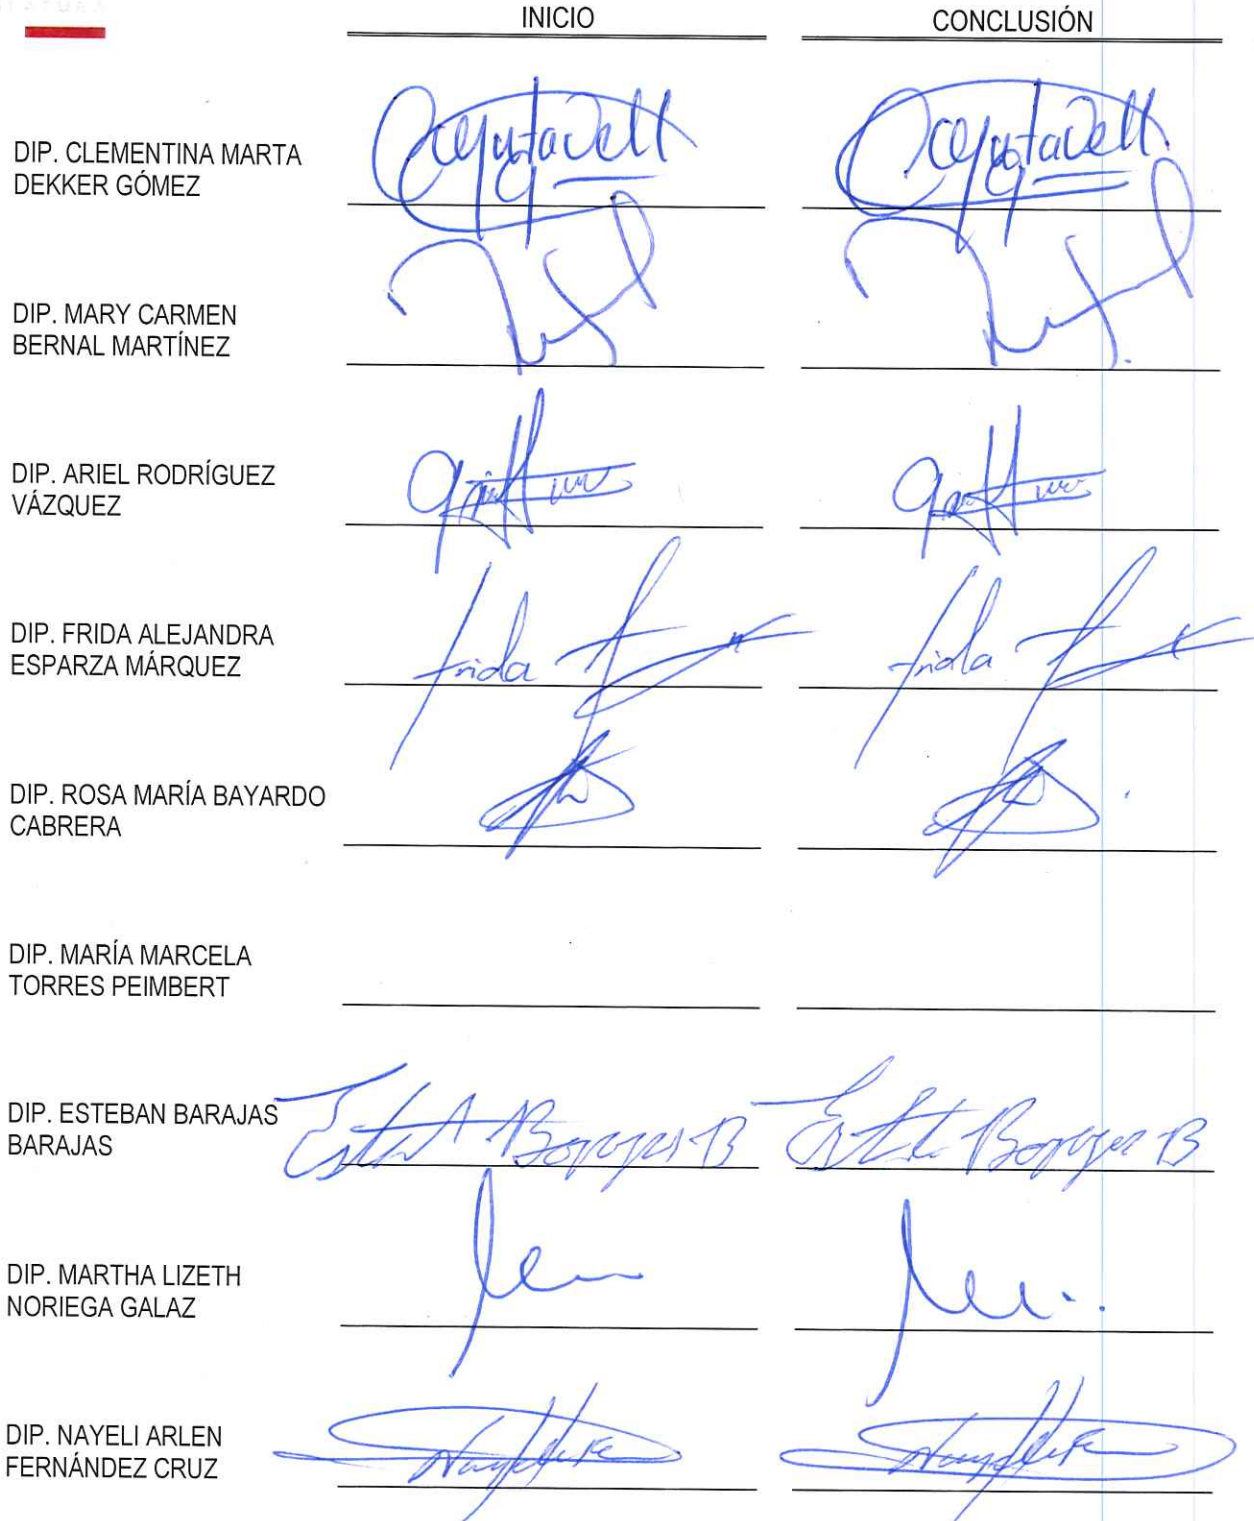 INICIO CONCLUSIÓN
DIP. CLEMENTINA MARTA
DEKKER GÓMEZ
DIP. MARY CARMEN
BERNAL MARTÍNEZ
DIP. ARIEL RODRÍGUEZ
VÁZQUEZ
DIP. FRIDA ALEJANDRA
ESPARZA MÁRQUEZ
frida frida
DIP. ROSA MARÍA BAYARDO
CABRERA
DIP. MARÍA MARCELA
TORRES PEIMBERT
DIP. ESTEBAN BARAJAS
BARAJAS
DIP. MARTHA LIZETH
NORIEGA GALAZ
DIP. NAYELI ARLEN
FERNÁNDEZ CRUZ